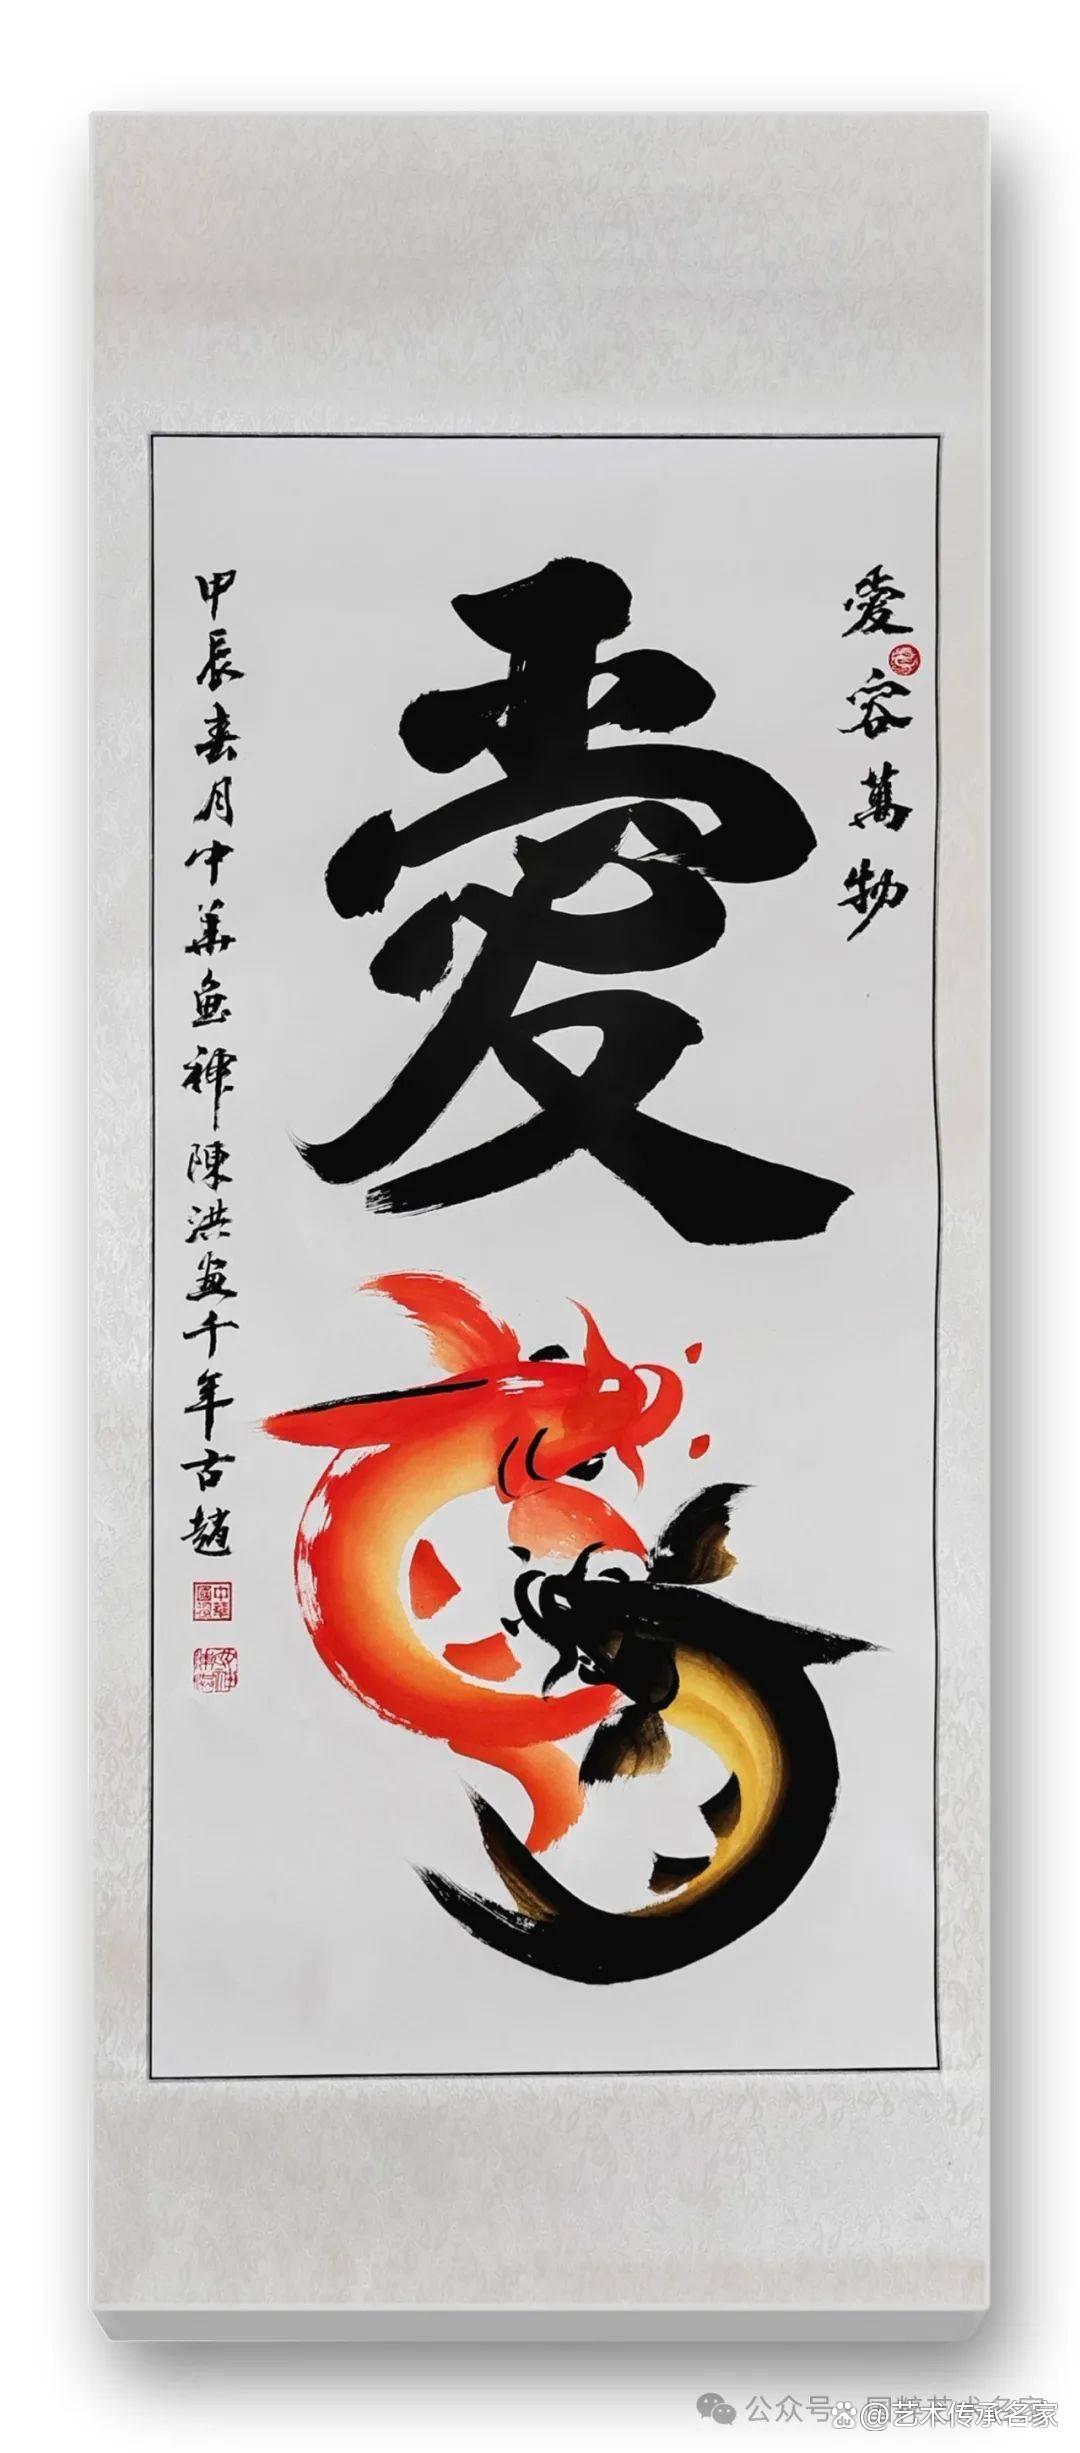 愛容萬物
愛
甲辰春月中華魚神陳洪画千年古趙
公众号
@艺术传承名家